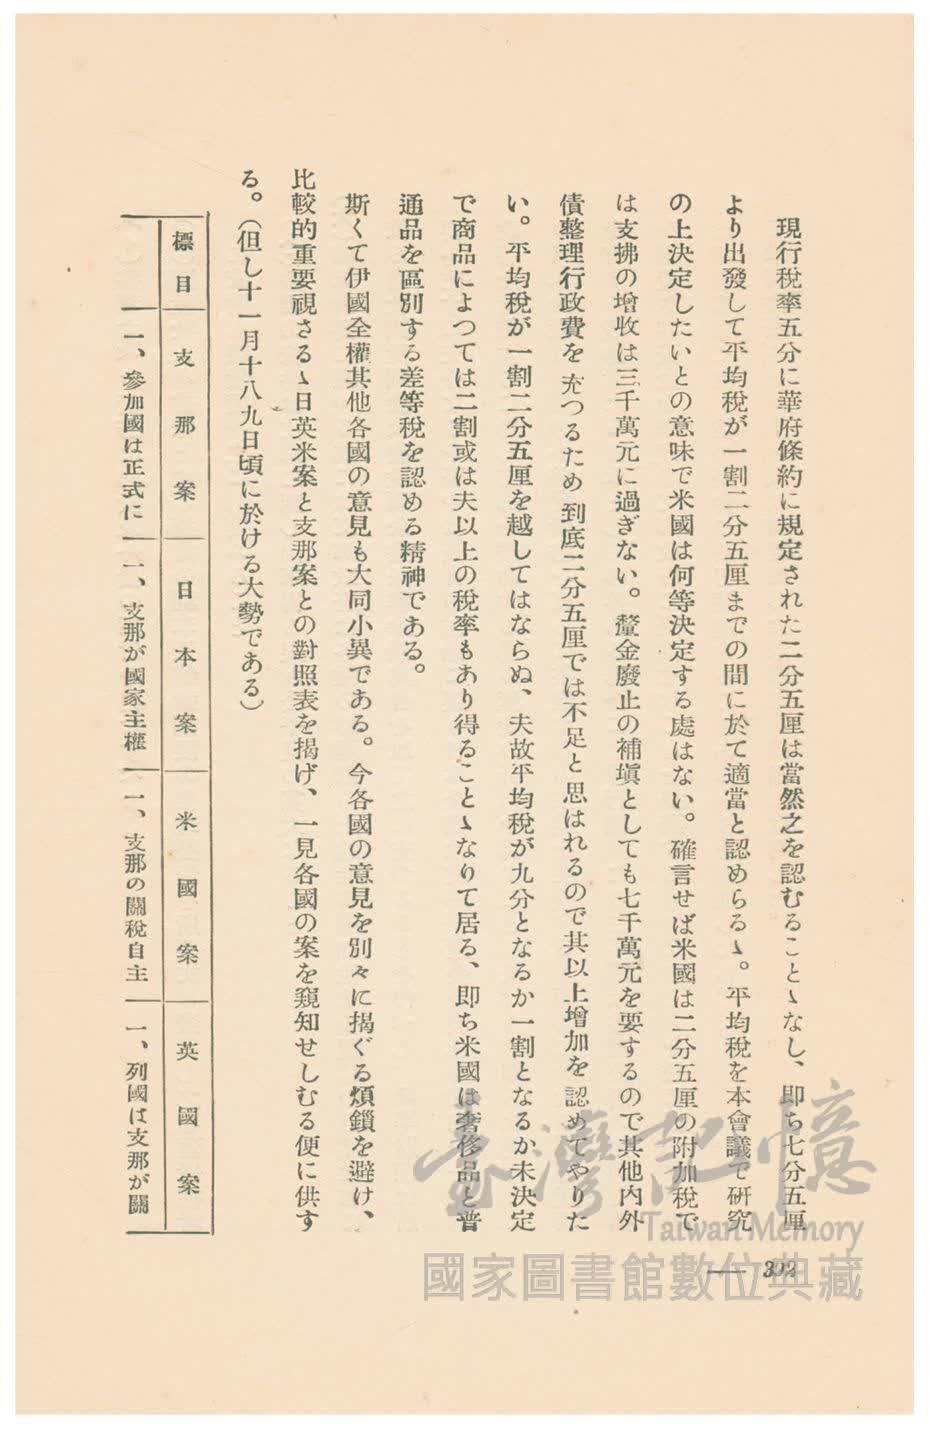 現行稅率五分に華府條約に規定された二分五厘は當然之を認むることゝなし、卽ち七分五厘
より出發して平均稅が一割二分五厘までの間に於て適當と認めらるゝ。平均稅を本會議で硏究
の上決定したいとの意味で米國は何等決定する處はない。確言せば米國は二分五厘の附加稅で
は支拂の增收は三千萬元に過ぎない。釐金廢止の補塡としても七千萬元を要するので其他內外
債整理行政費を充つるため到底二分五厘では不足と思はれるので其以上增加を認めてやりた
い。平均稅が一割二分五厘を越してはならぬ、夫故平均稅が九分となるか一割となるか未決定
で商品によつては二割或は夫以上の稅率もあり得ることゝなりて居る、卽ち米國は奢侈品と普
通品を區別する差等稅を認める精神である。
斯くて伊國全權其他各國の意見も大同小異である。今各國の意見を別々に揭ぐる煩鎖を避け、
比較的重要視さるゝ日英米案と支那案との對照表を揭げ、一見各國の案を窺知せしむる便に供す
る。(但し十一月十八九日頃に於ける大勢である)
標目 支那案 日本案 米國案 英國案
一、參加國は正式に 一、支那が國家主權 一、支那の關稅自主 一、列國は支那が關
— 302
臺灣記憶
Taiwan Memory
國家圖書館數位典藏